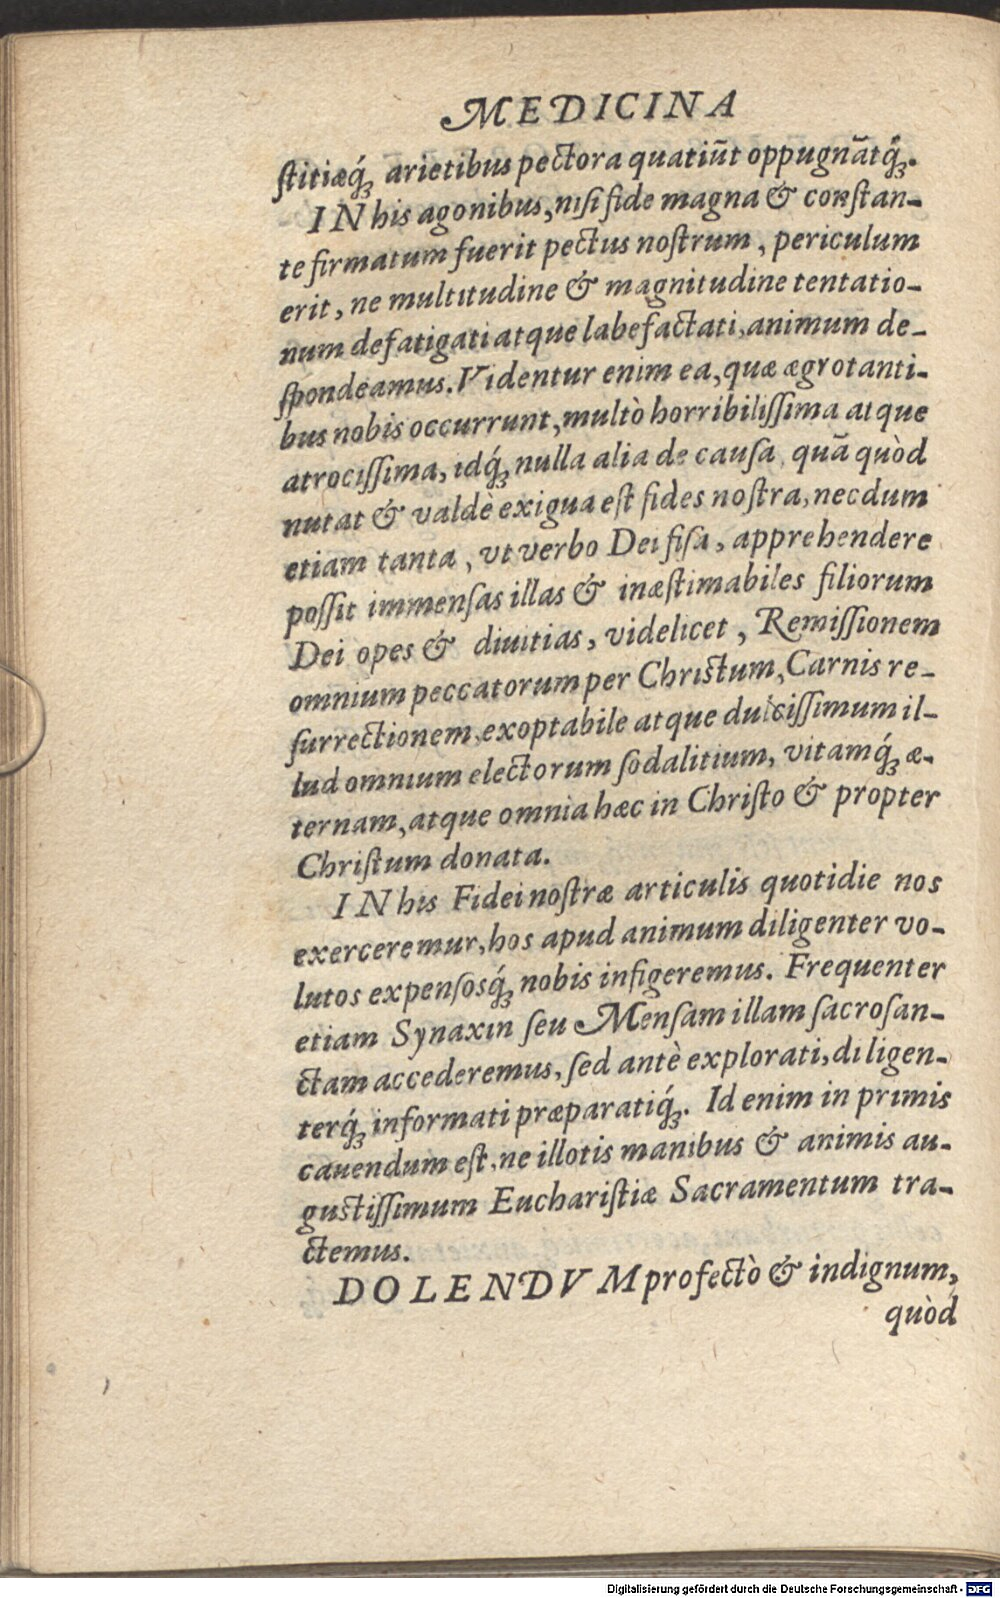 MEDICINA
ſtitiæq́ꝫ arietibus pectora quatiūt oppugnātq́ꝫ.
IN his agonibus, niſi fide magna & conſtan-
te firmatum fuerit pectus noſtrum, periculum
erit, ne multitudine & magnitudine tentatio-
num defatigati atque labefactati, animum de-
ſpondeamus. Videntur enim ea, quæ ægrotanti-
bus nobis occurrunt, multò horribiliſſima atque
atrociſſima, idq́ꝫ nulla alia de cauſa, quā quòd
nutat & valdè exigua eſt fides noſtra, necdum
etiam tanta, vt verbo Dei fiſa, apprehendere
poſſit immenſas illas & inæſtimabiles filiorum
Dei opes & diuitias, videlicet, Remiſſionem
omnium peccatorum per Chriſtum, Carnis re-
ſurrectionem, exoptabile atque dulciſſimum il-
lud omnium electorum ſodalitium, vitamq́ꝫ æ-
ternam, atque omnia hæc in Chriſto & propter
Chriſtum donata.
IN his Fidei noſtræ articulis quotidie nos
exerceremur, hos apud animum diligenter vo-
lutos expenſosq́ꝫ nobis infigeremus. Frequenter
etiam Synaxin ſeu Menſam illam ſacroſan-
ctam accederemus, ſed antè explorati, diligen-
terq́ꝫ informati præparatiq́ꝫ. Id enim in primis
cauendum eſt, ne illotis manibus & animis au-
guſtiſſimum Euchariſtiæ Sacramentum tra-
ctemus.
DOLENDVM profectò & indignum,
quòd
Digitalisierung gefördert durch die Deutsche Forschungsgemeinschaft - DFG